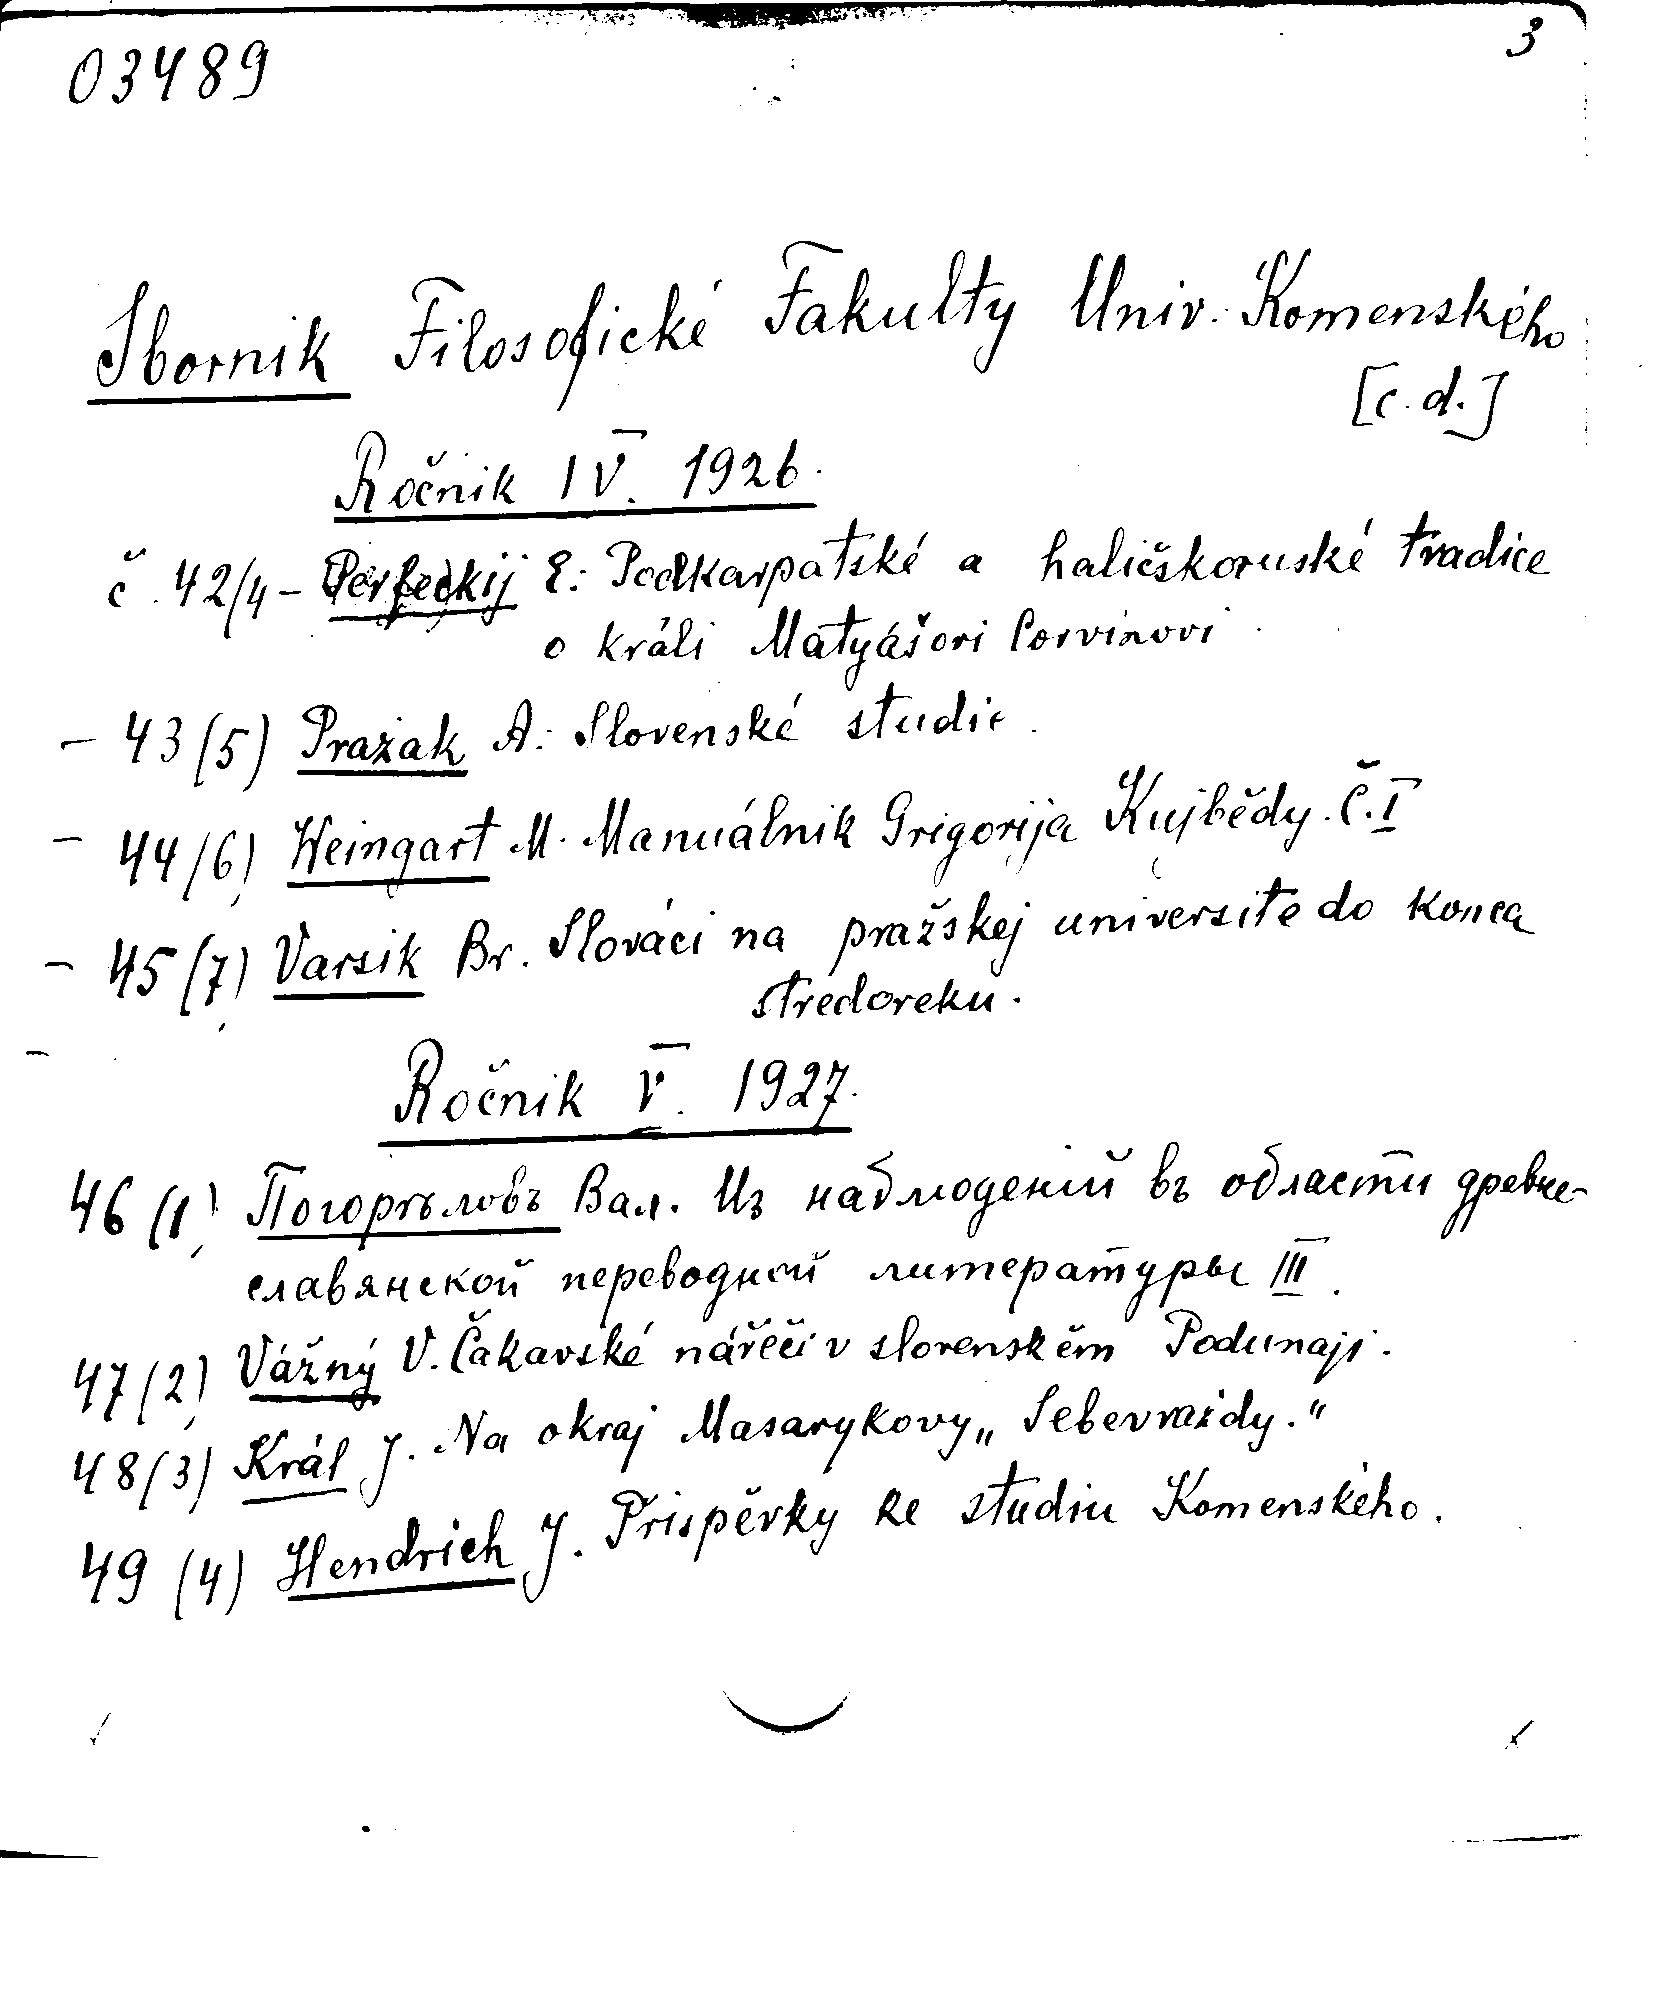 03489
3
Sbornik Filosofické Fakulty Univ. Komenského
[c. d.]
Ročnik IV. 1926.
č. 42/4 - Perfeckij E: Podkarpatské a haličskoruské tradice
o králi Matyášovi Corvinovi
- 43 (5) Pražak A: Slovenské studie
- 44 (6) Weingart M. Manuálnik Grigorija Kujbědy. Č. I
- 45 (7) Varsik Br. Slováci na pražskej universite do konca
stredoveku.
Ročnik V. 1927.
46 (1) Погорѣловъ Вал. Из наблюденій въ области древне-
славянской переводной литературы III.
47 (2) Vážný V. Čakavské nářečí v slovenském Podunaji.
48 (3) Král J. Na okraj Masarykovy „Sebevraždy."
49 (4) Hendrich J. Přispěvky ke studiu Komenského.